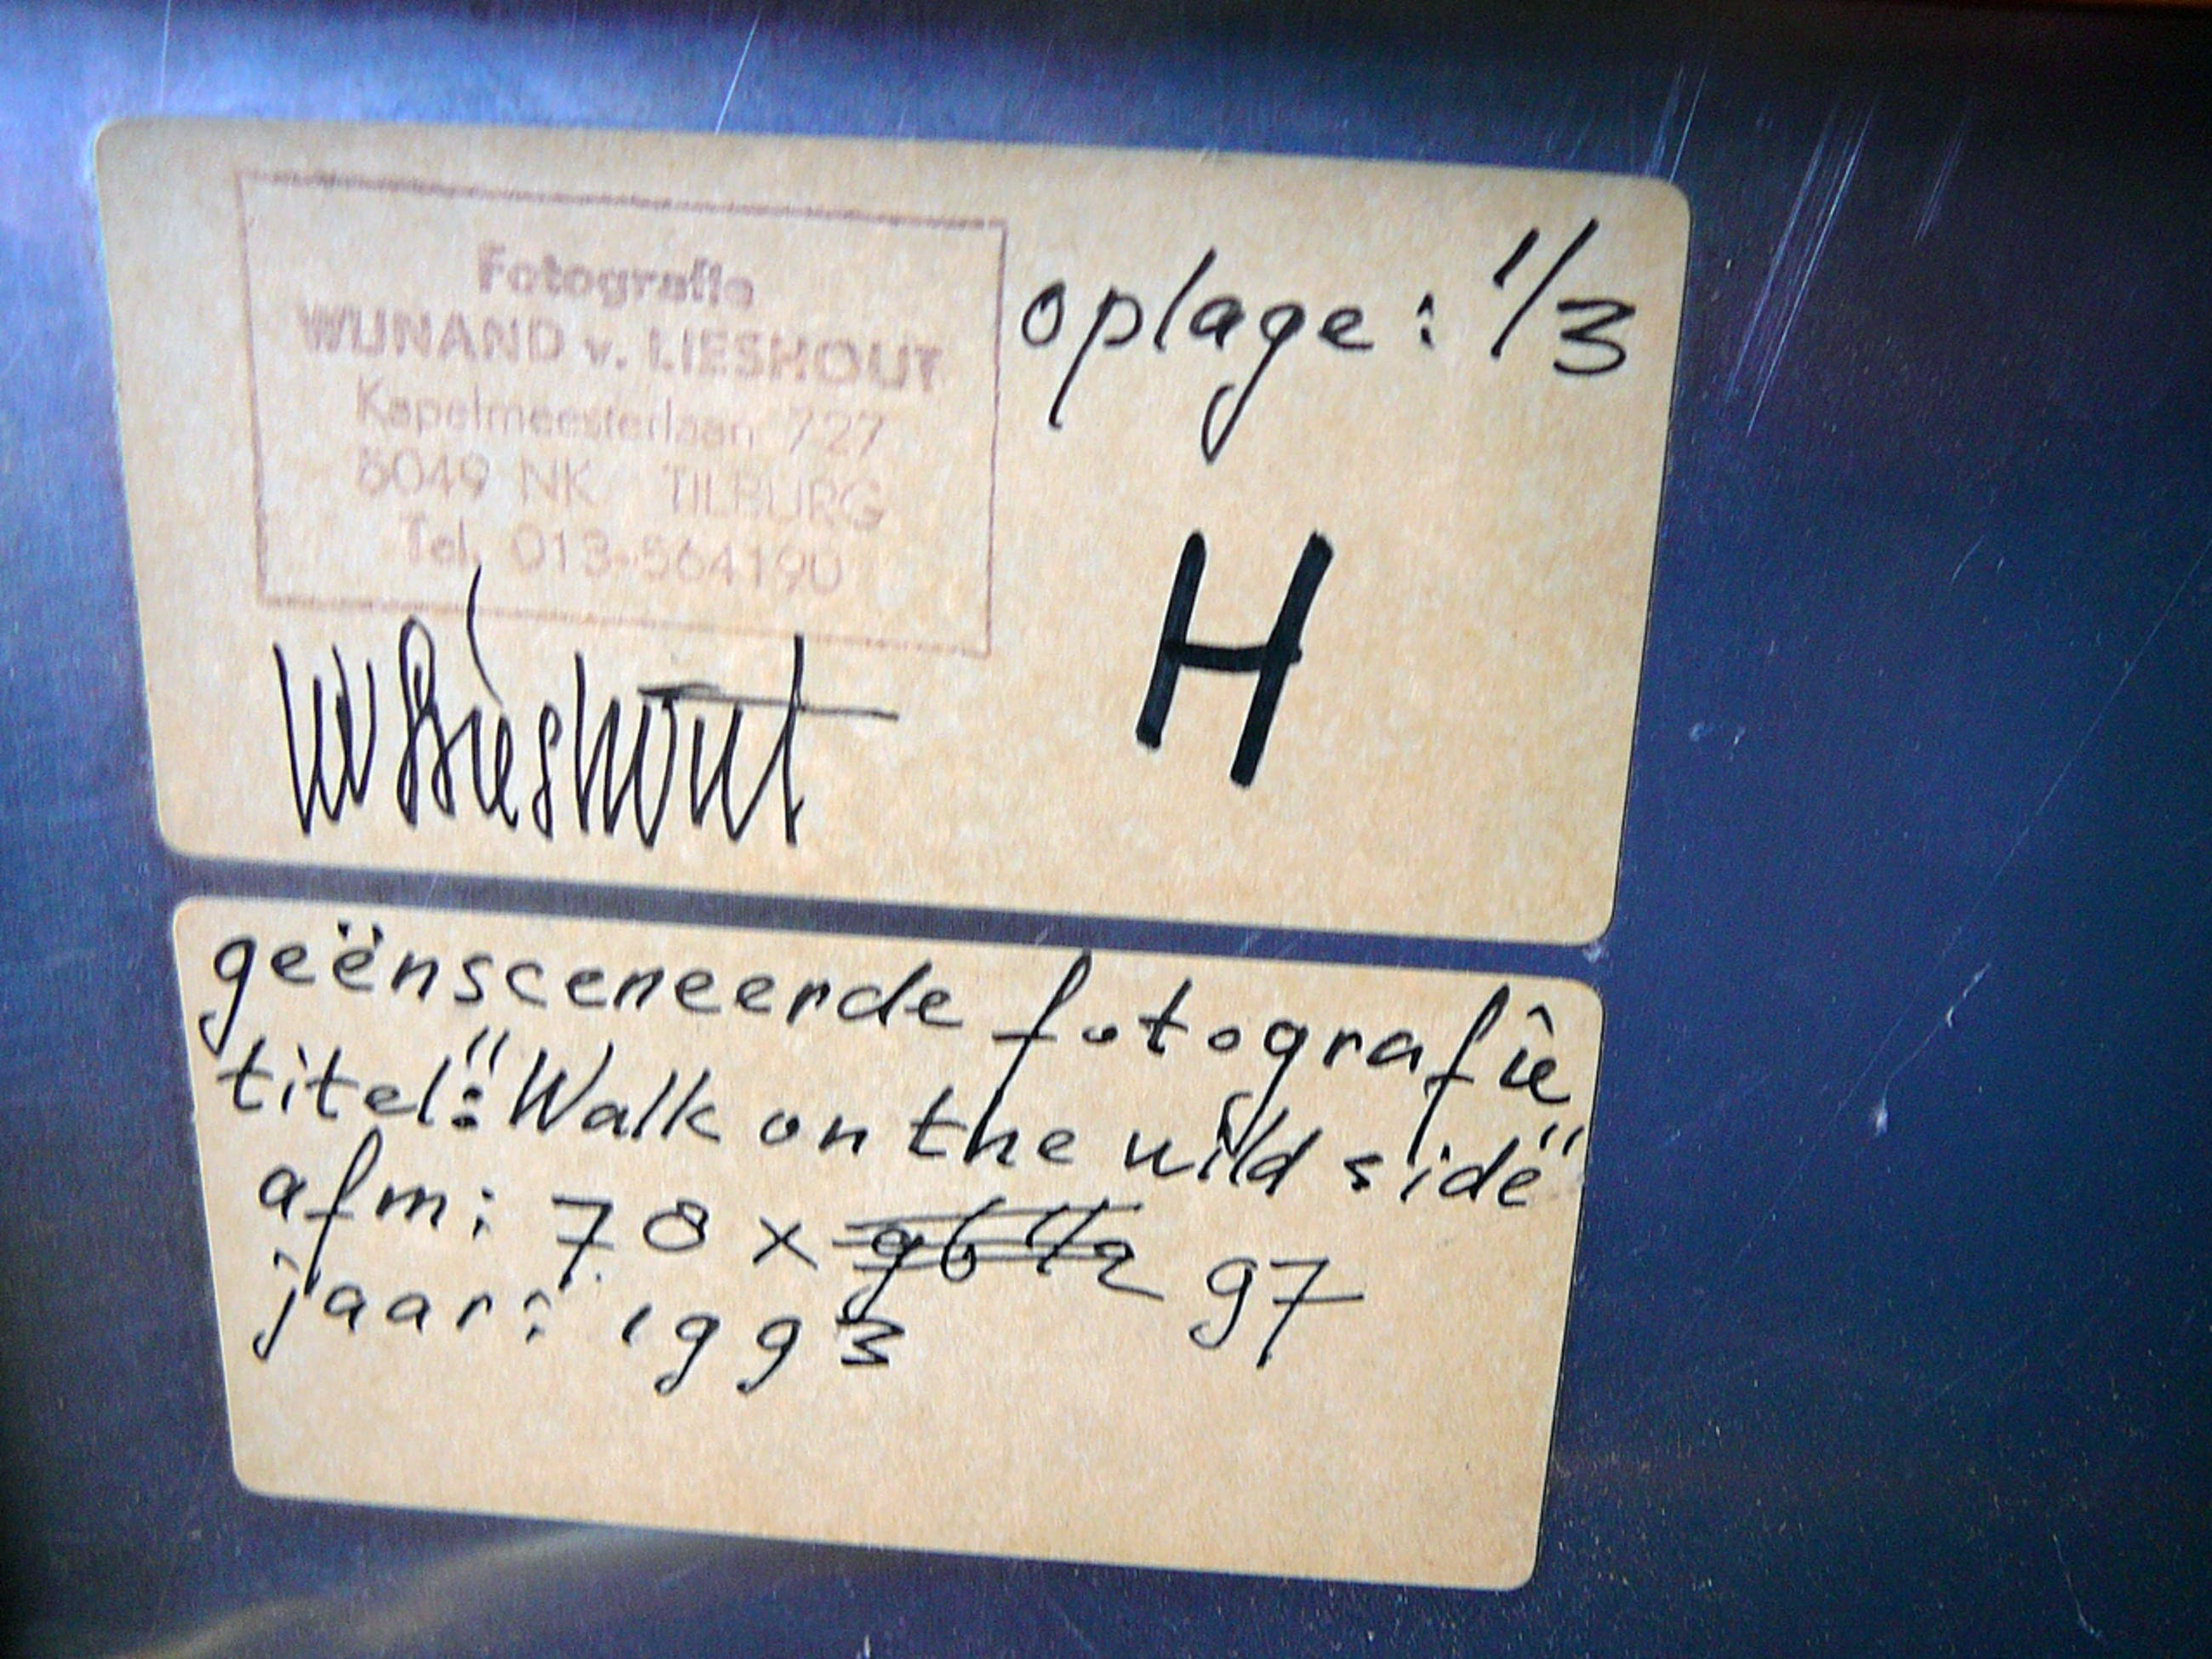 Fotografie
WIJNAND v. LIESHOUT
Kapelmeesterlaan 727
5049 NK TILBURG
Tel. 013-564190
oplage: 1/3
H
WvLieshout
geënsceneerde fotografie
titel: "Walk on the wild side"
afm: 78 x 96 1/2 97
jaar: 1993